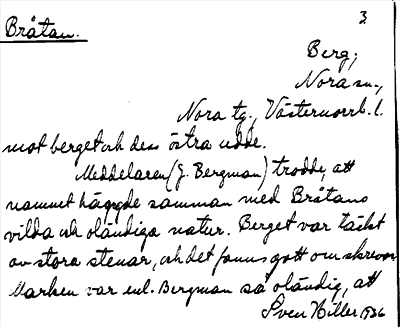 3
Bråtan.
Berg,
Nora sn.,
Nora tg., Västernorrl. l.
mot berget och dess östra udde.
Meddelaren (J. Bergman) trodde, att
namnet hängde samman med Bråtans
vilda och oländiga natur. Berget var täckt
av stora stenar, och det fanns gott om skrevor
Marken var enl. Bergman så oländig, att
Sven Hiller 1936